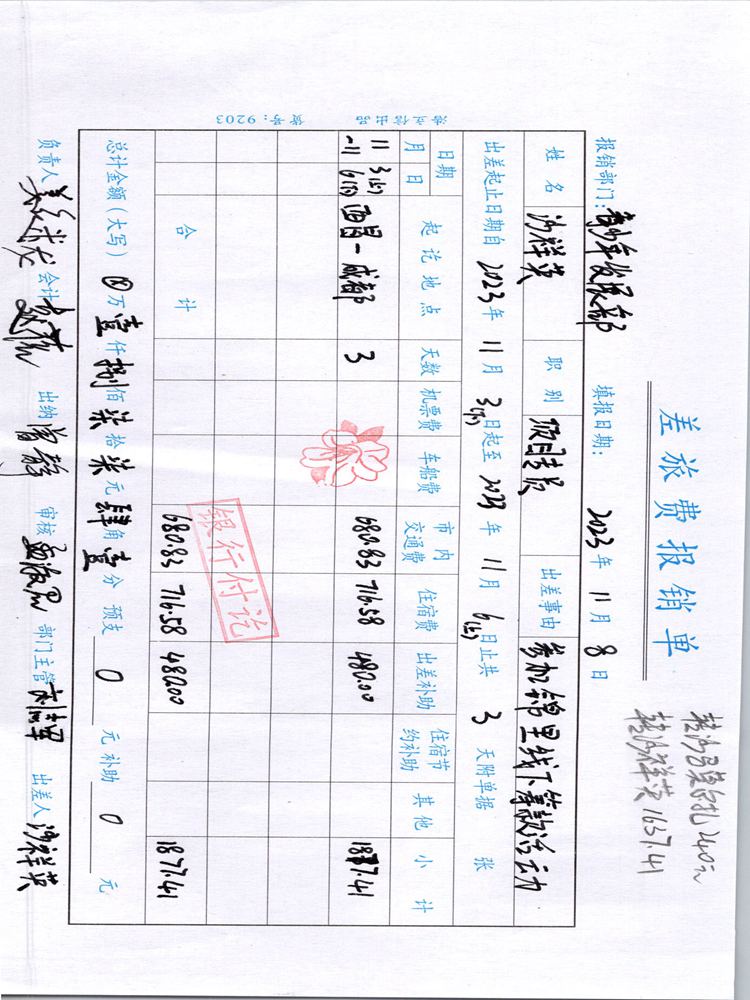 差旅费报销单
转沙呂莫自扎240元
转沙祥英1637.41
报销部门：青少年发展部 填报日期： 2023 年 11 月 8 日
姓名 沙祥英 职别 项目专员 出差事由 参加锦里线下筹款活动
出差起止日期自 2023 年 11 月 3(下) 日起至 2023 年 11 月 6(上) 日止共 3 天附单据 张
日期 起讫地点 天数 机票费 车船费 市内交通费 住宿费 出差补助 住宿节约补助 其他 小计
月 日
11 3(下) 西昌-成都 3 680.83 716.58 480.00 1877.41
-11 6(上)
银行付讫
合计 680.83 716.58 480.00 1877.41
总计金额（大写） 万 壹 仟 捌 佰 柒 拾 柒 元 肆 角 壹 分 预支 0 元 补助 0 元
负责人 会计 出纳 曾静 审核 部门主管 出差人 沙祥英
海文信出品 货号：9203